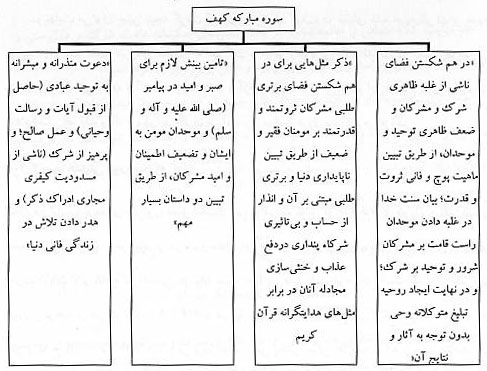 سوره مبارکه کهف
«در هم شکستن فضای
ناشی از غلبه ظاهری
شرك و مشرکان و
ضعف ظاهری توحید و
موحدان، از طریق تبیین
ماهیت پوچ و فانی ثروت
و قدرت؛ بیان سنت خدا
در غلبه دادن موحدان
راست قامت بر مشرکان
شرور و توحید بر شرك؛
و در نهایت ایجاد روحیه
تبلیغ متوکلانه وحی
بدون توجه به آثار و
نتایج آن»
«ذکر مثل‌هایی برای در
هم شکستن فضای برتری
طلبی مشرکان ثروتمند و
قدرتمند بر مومنان فقیر و
ضعیف از طریق تبیین
ناپایداری دنیا و برتری
طلبی مبتنی بر آن و انذار
از حساب و بی‌تاثیری
شرکاء پنداری دردفع
عذاب و خنثی‌سازی
مجادله آنان در برابر
مثل‌های هدایتگرانه قرآن
کریم
«تامین بینش لازم برای
صبر و امید در پیامبر
(صلی الله علیه و آله و
سلم) و موحدان مومن به
ایشان و تضعیف اطمینان
و امید مشرکان، از طریق
تبیین دو داستان بسیار
مهم»
«دعوت منذرانه و مبشرانه
به توحید عبادی (حاصل
از قبول آیات و رسالت
وحیانی) و عمل صالح؛ و
پرهیز از شرك (ناشی از
مسدودیت کیفری
مجاری ادراك ذکر) و
هدر دادن تلاش در
زندگی فانی دنیا»